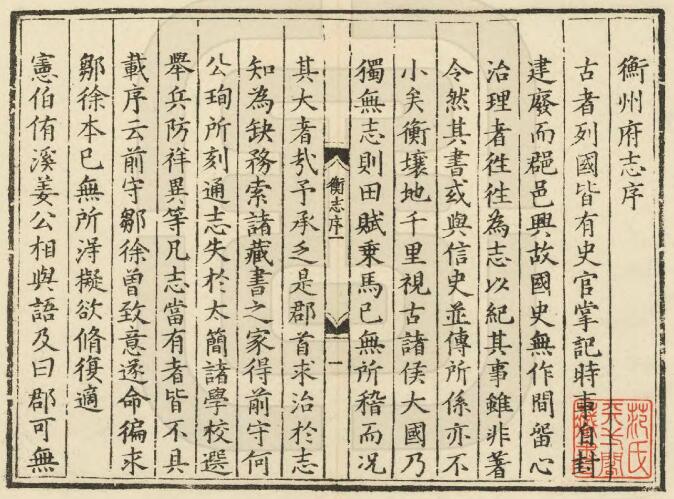 衡州府志序
古者列國皆有史官掌記時事自封
建廢而郡邑興故國史無作間留心
治理者徃徃為志以紀其事雖非著
令然其書或與信史並傳所係亦不
小矣衡壤地千里視古諸侯大國乃
獨無志則田賦乗馬已無所稽而况
衡志序一
一
其大者㢤予承乏是郡首求治於志
知為缺務索諸藏書之家得前守何
公珣所刻通志失於太簡諸學校選
舉兵防祥異等凡志當有者皆不具
載序云前守鄒徐曽致意遂命徧求
鄒徐本已無所淂擬欲脩復適
憲伯侑溪姜公相與語及曰郡可無
范氏天一閣藏書